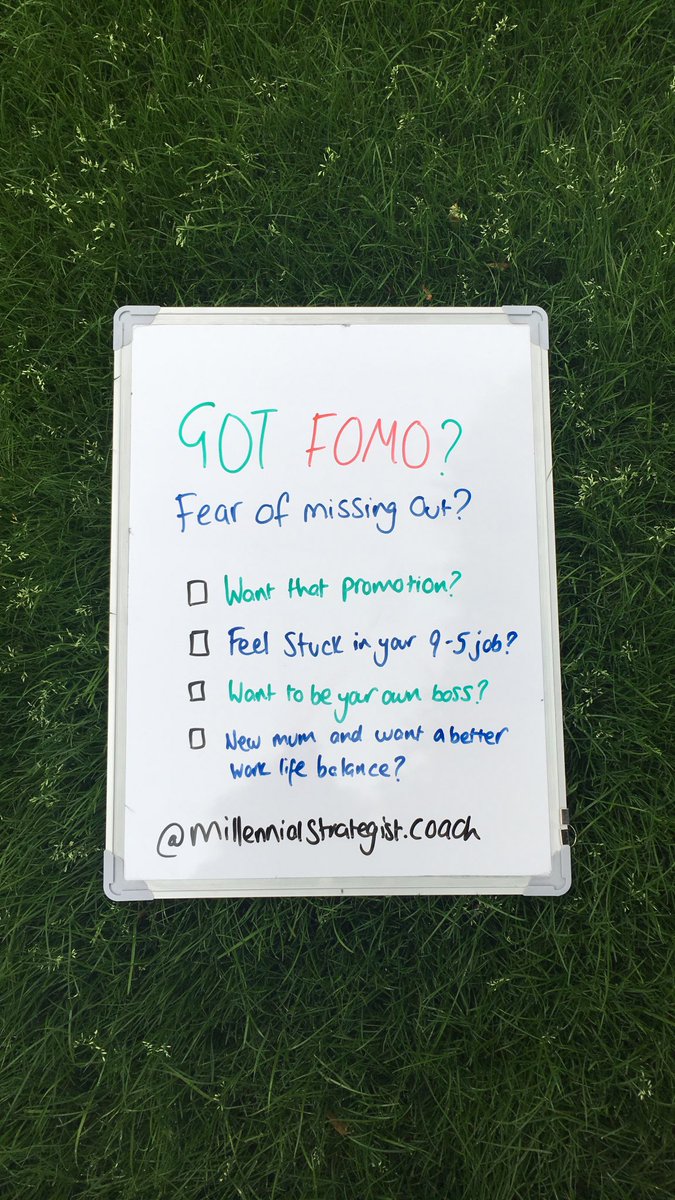 GOT FOMO?
Fear of missing out?
Want that promotion?
Feel stuck in your 9-5 job?
Want to be your own boss?
New mum and want a better
work life balance?
@millennialstrategist.coach